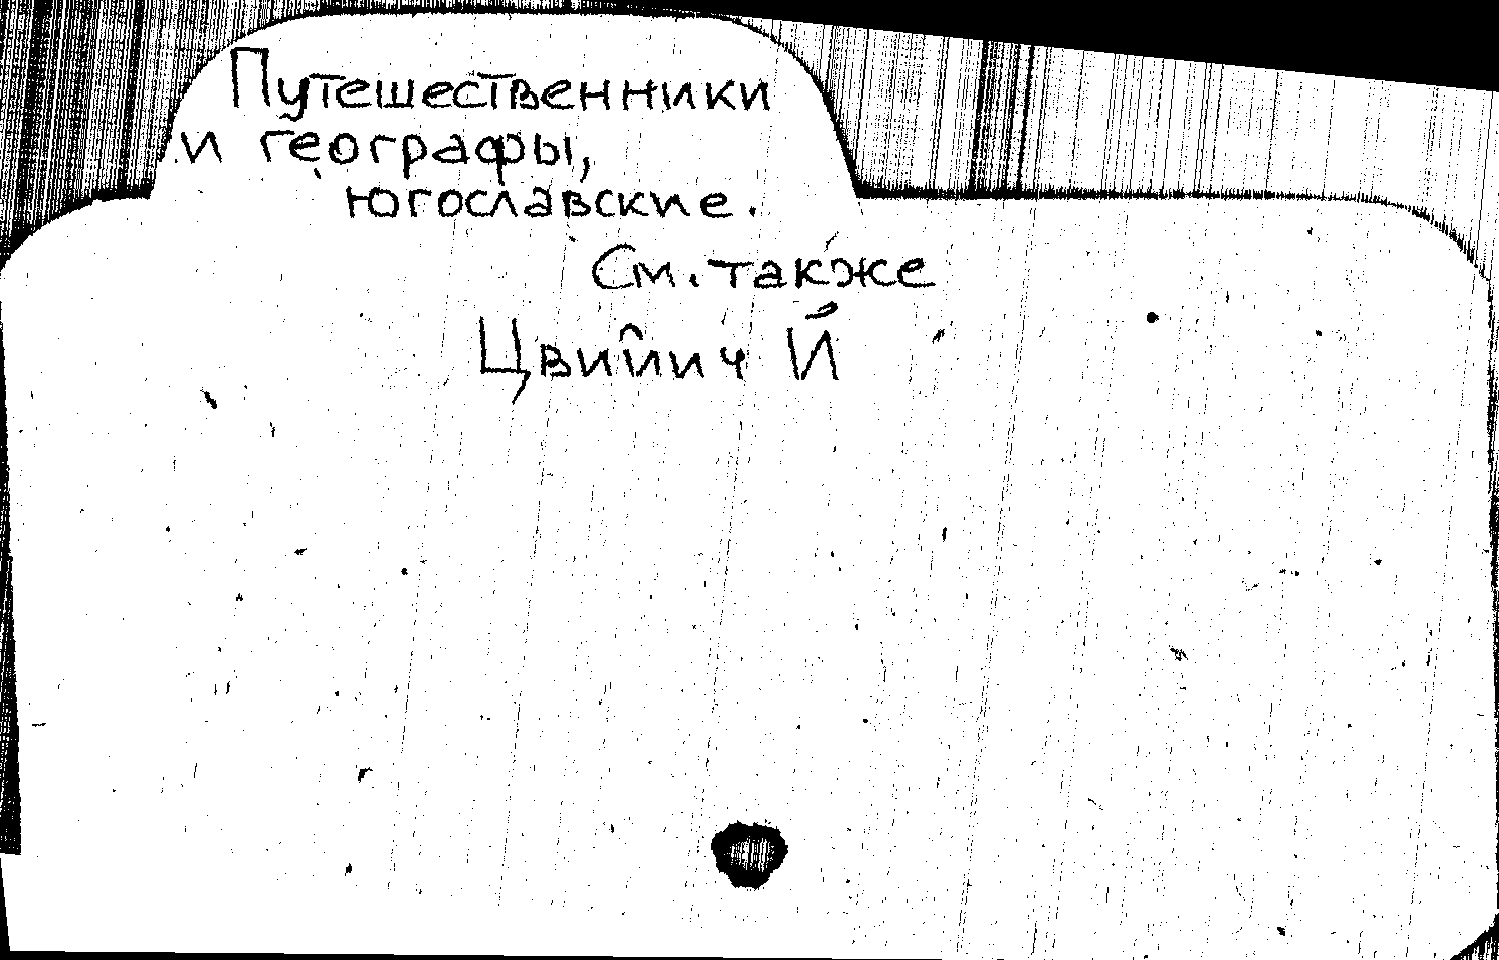 Путешественники
и географы,
югославские.
См. также
Цвийич Й